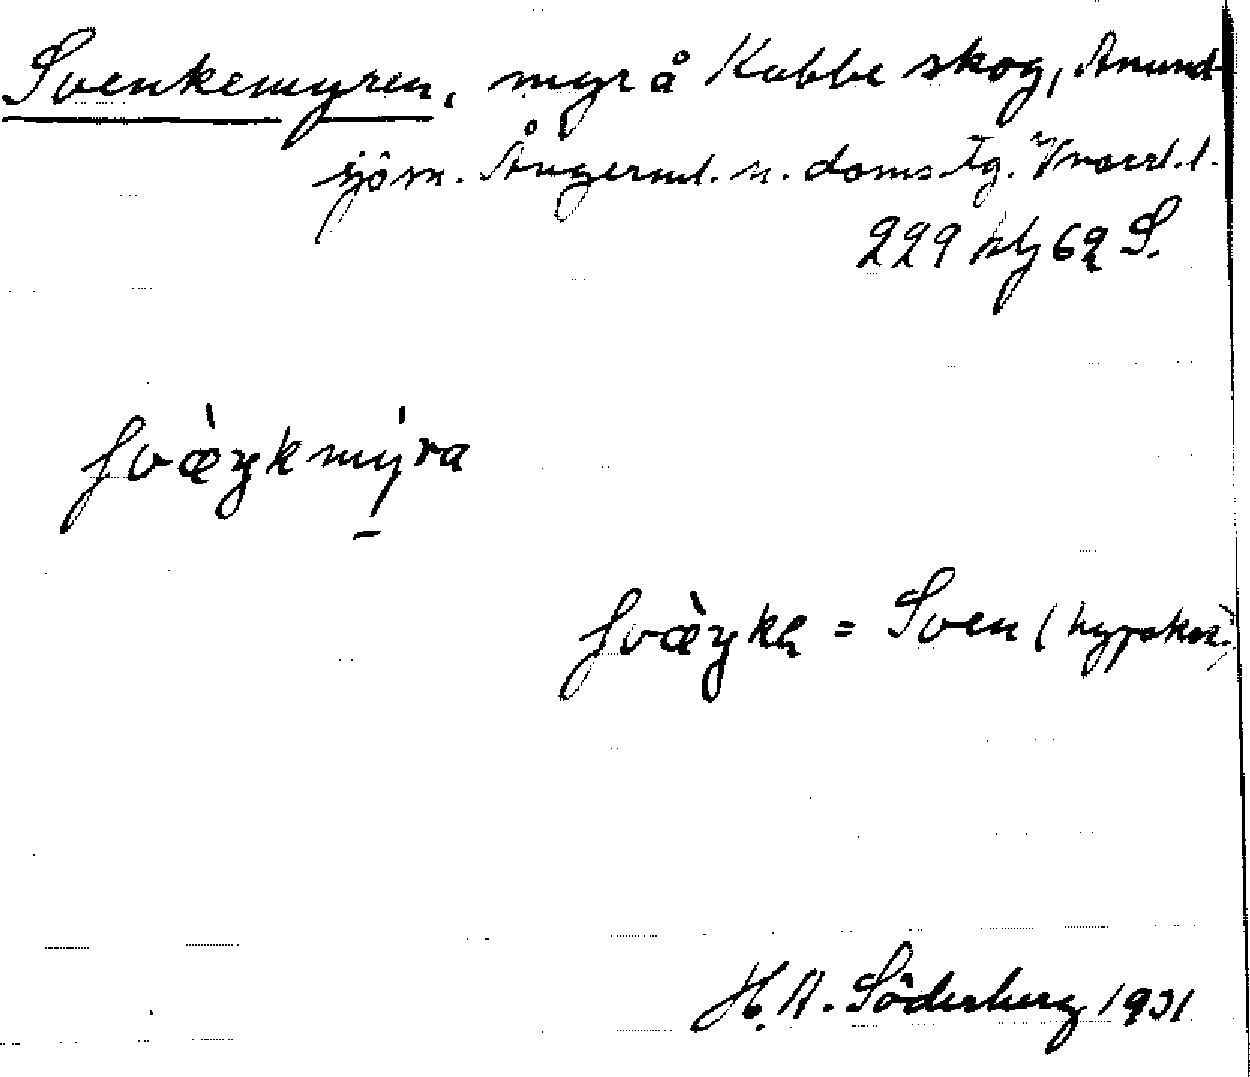 Svenkemyren, myr å Kubbe skog, Anund-
sjö sn. Ångerml. n. doms. tg. Vnorrl. l.
229 h/j 6q S.
svæ̀ŋkmýra
svæ̀ŋką = Sven (hypokor.)
H. A. Söderberg 1931